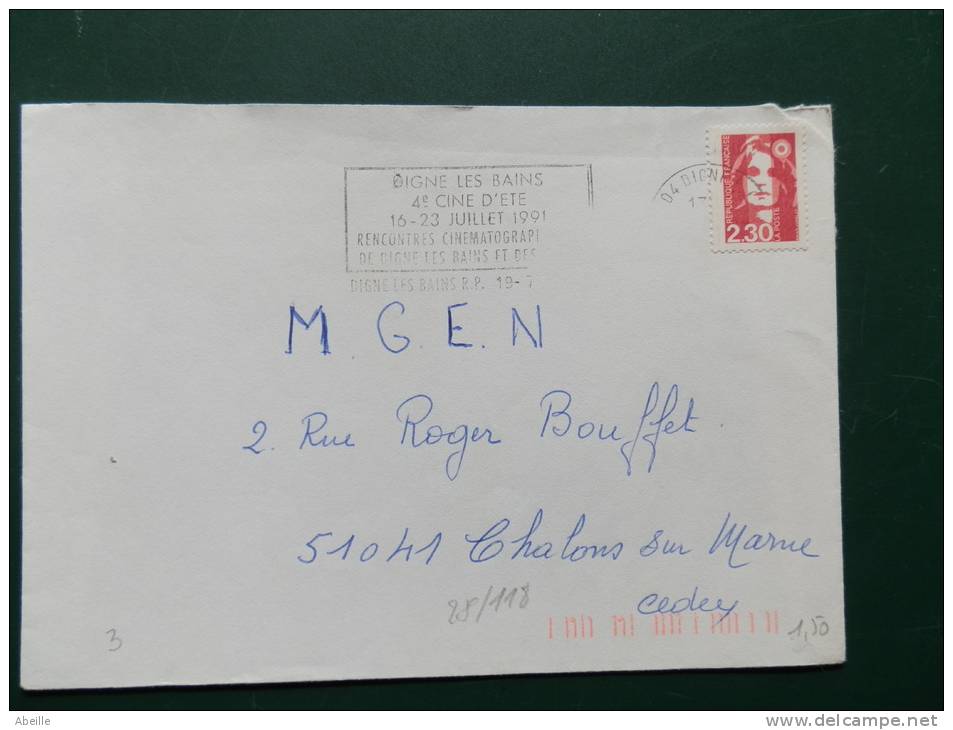 DIGNE LES BAINS
4e CINE D'ETE
16-23 JUILLET 1991
RENCONTRES CINEMATOGRAPI
DE DIGNE LES BAINS ET DES
DIGNE LES BAINS R.P. 19-7
04 DIGN
17
REPUBLIQUE FRANÇAISE
2.30
LA POSTE
M. G. E. N
2. Rue Roger Bouffet.
51041 Chalons sur Marne
cedex
28/118
3
1,50
Abeille
www.delcampe.net